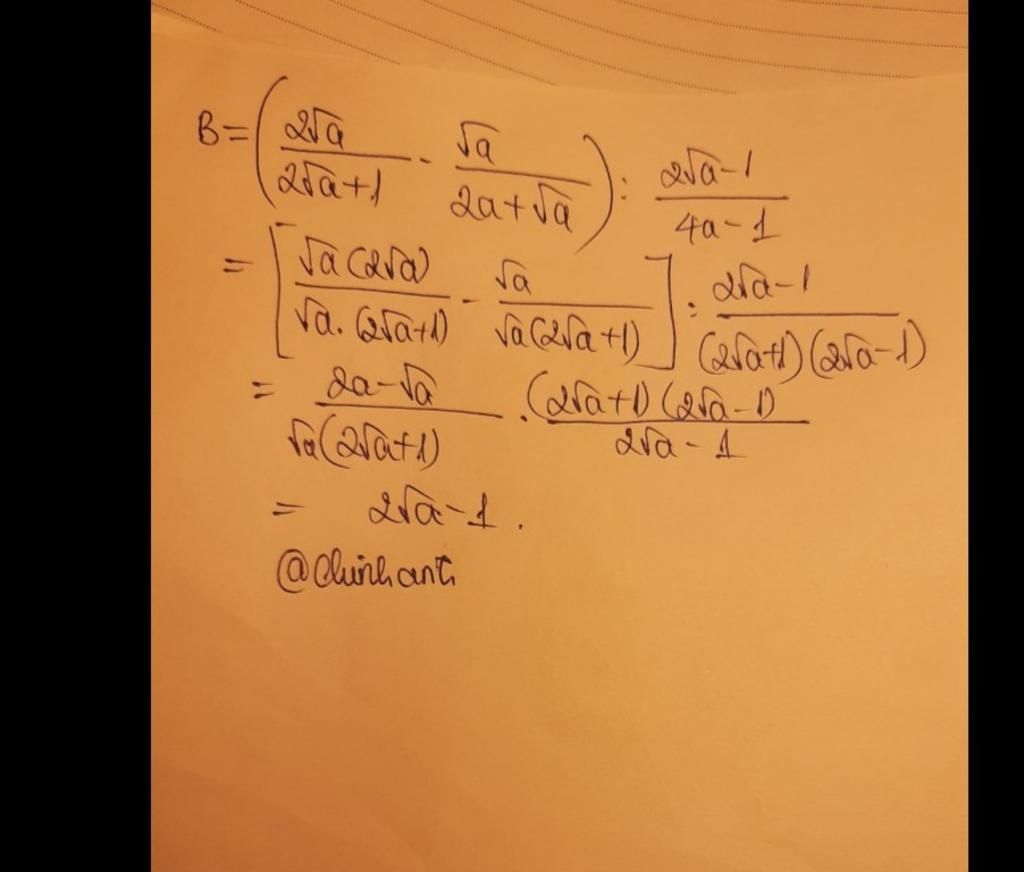 B = ( 2√a / 2√a+1 - √a / 2a+√a ) : 2√a-1 / 4a-1
= [ √a(2√a) / √a.(2√a+1) - √a / √a(2√a+1) ] : 2√a-1 / (2√a+1)(2√a-1)
= 2a-√a / √a(2√a+1) . (2√a+1)(2√a-1) / 2√a-1
= 2√a-1.